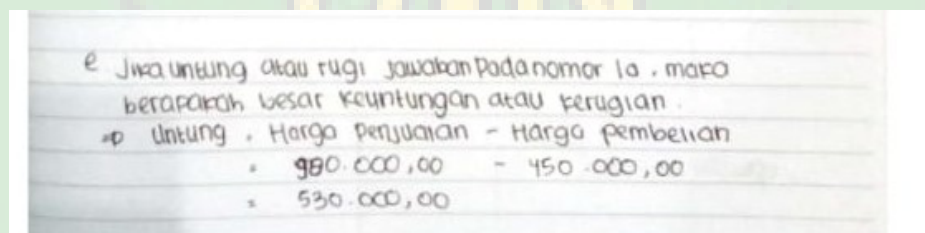 e Jika untung atau rugi jawaban pada nomor 1a. maka
berapakah besar keuntungan atau kerugian.
⇒ Untung = Harga Penjualan - Harga pembelian
= 980.000,00 - 450.000,00
= 530.000,00